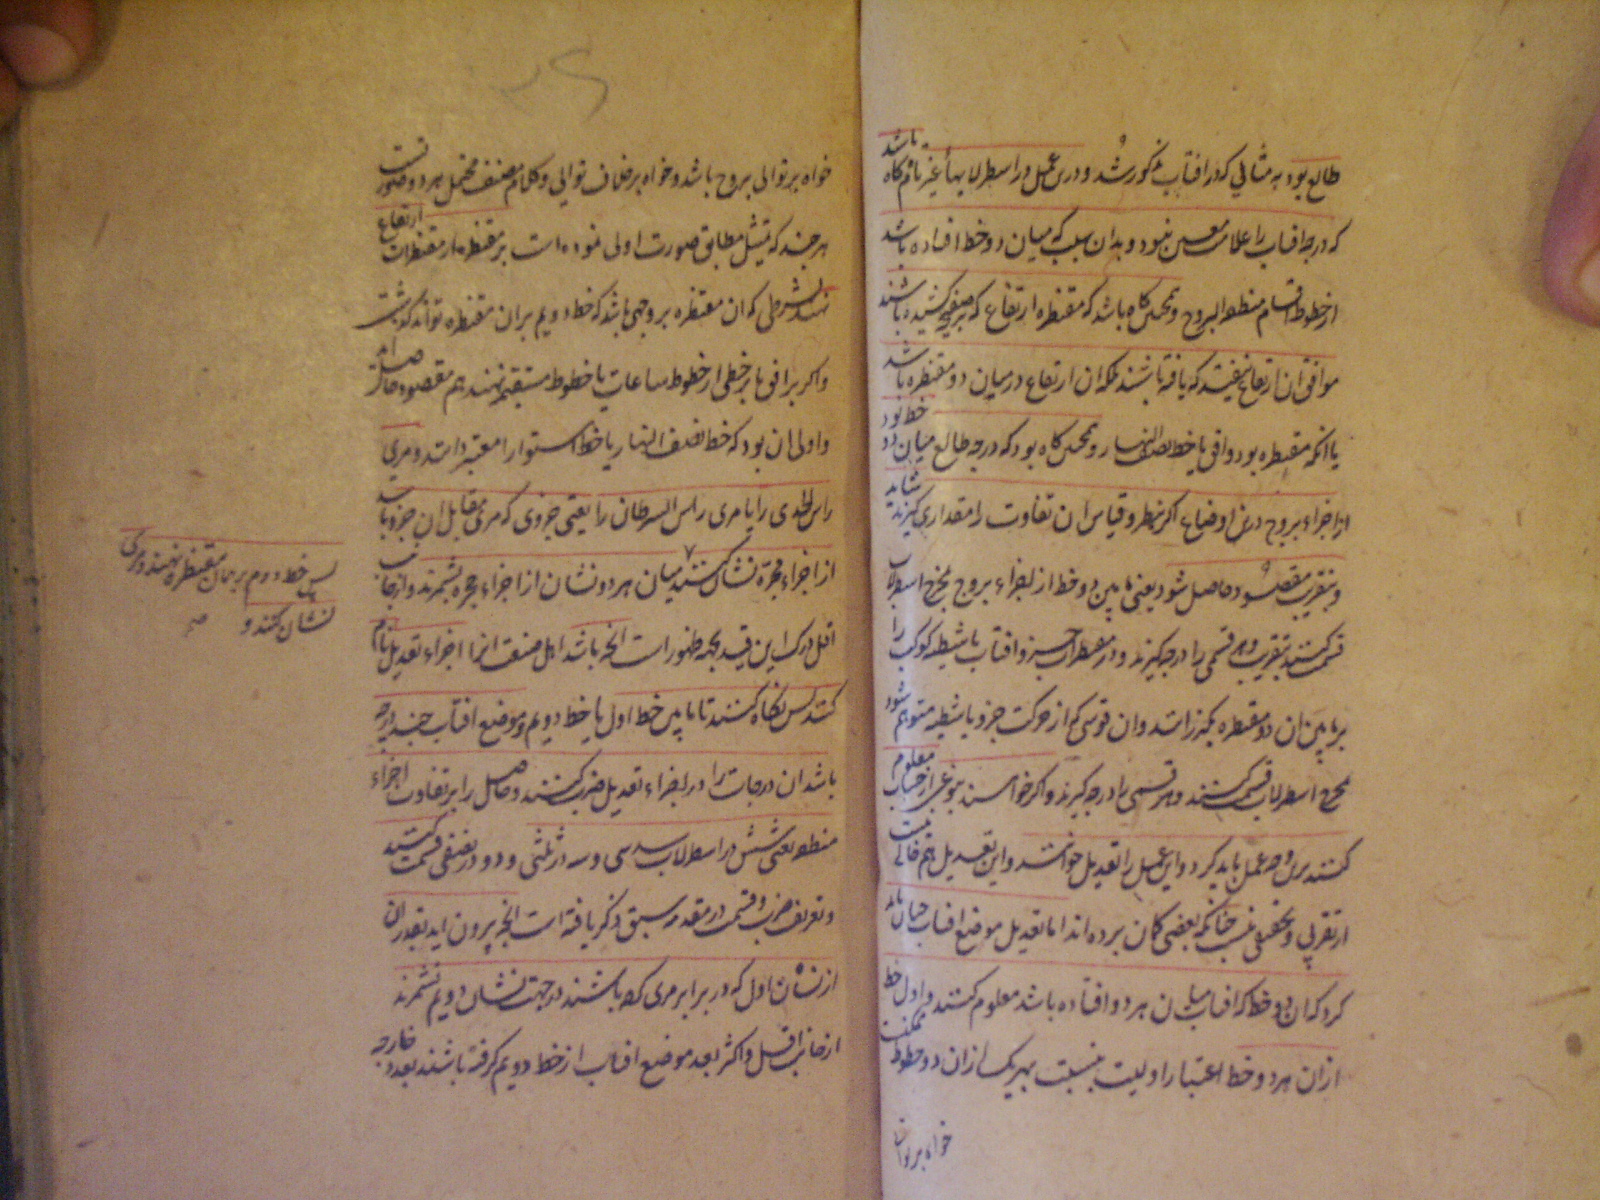 طالع بود به مثالی که در افتاب مذکور شد و درین عمل در اسطرلابهاء غیر تام گاه باشد
که درجه افتاب را علامت معین نبود و بدان سبب که میان دو خط افتاده باشد
از خطوط اقسام منطقه البروج و همچنین گاه باشد که مقنطره ارتفاع که بر صفیحه کشیده باشند
موافق ان ارتفاع نیفتد که یافته باشند بلکه ان ارتفاع در میان دو مقنطره باشد
یا انکه مقنطره بود و افق یا خط نصف النهار و همچنین گاه بود که درجه طالع میان دو خط بود
از اجزاء بروج درین اوضاع اگر بنظر و قیاس ان تفاوت را مقداری گیرند شاید
و بتقریب مقصود حاصل شود یعنی مابین دو خط از اجزاء بروج بمخرج اسطرلاب
قسمت کنند بتقریب و هر قسمی را درجه گیرند و در مقنطرات جزو افتاب یا شظیه کوکب را
بر مابین ان دو مقنطره بگذرانند و ان قوسی که از حرکت جزو یا شظیه متوهم شود
بمخرج اسطرلاب قسمت کنند و هر قسمی را درجه گیرند و اگر خواهند بنوعی از حساب معلوم
کنند برین وجه عمل باید کرد و این عمل را تعدیل خوانند و این تعدیل هم خالی نیست
از تقریبی و تحقیقی نیست چنانکه بعضی گمان برده اند اما تعدیل موضع افتاب چنان باید
کرد که ان دو خط که افتاب میان هر دو افتاده باشد معلوم کنند و اول خط
از ان هر دو خط اعتبار اولیت بنسبت بهر یک از ان دو خطوط ممکنست
خواه بر توالی
خواه بر توالی بروج باشد و خواه بر خلاف توالی و کلام مصنف محتمل هر دو صورتست
هر چند که تمثیل مطابق صورت اولی نموده است بر مقنطره از مقنطرات ارتفاع
نهند بشرطی که ان مقنطره بر وجهی باشد که خط دویم بر ان مقنطره تواند گذشت
و اگر بر افق یا بر خطی از خطوط ساعات یا خطوط مستقیم نهند هم مقصود حاصل اید
و اولی ان بود که خط نصف النهار یا خط استوا را معتبر دانند و مری
راس الجدی را یا مری راس السرطان را یعنی جزوی که مری مقابل ان جزو باشد
از اجزاء حجره نشان کنند میان هر دو نشان از اجزاء حجره بشمرند و از جانب
اقل درک این قید بجهه ظهور است انچه باشد اهل صنعت انرا اجزاء تعدیل نام
کنند پس نگاه کنند تا مابین خط اول یا خط دویم و موضع افتاب چند درجه
باشد ان درجات را در اجزاء تعدیل ضرب کنند و حاصل را بر تفاوت اجزاء
منطقه یعنی شش در اسطرلاب سدسی و سه در ثلثی و دو در نصفی قسمت کنند
و تعریف ضرب و قسمت در مقدمه سبق ذکر یافته است انچه بیرون اید بقدر ان
از نشان اول که در برابر مری کرده باشند در جهت نشان دویم بشمرند
از جانب اقل و اکثر بعد موضع افتاب از خط دویم گرفته باشند بعدد خارجه
پس خط دوم بر همان مقنطره نهند و مری
نشان کنند و صح